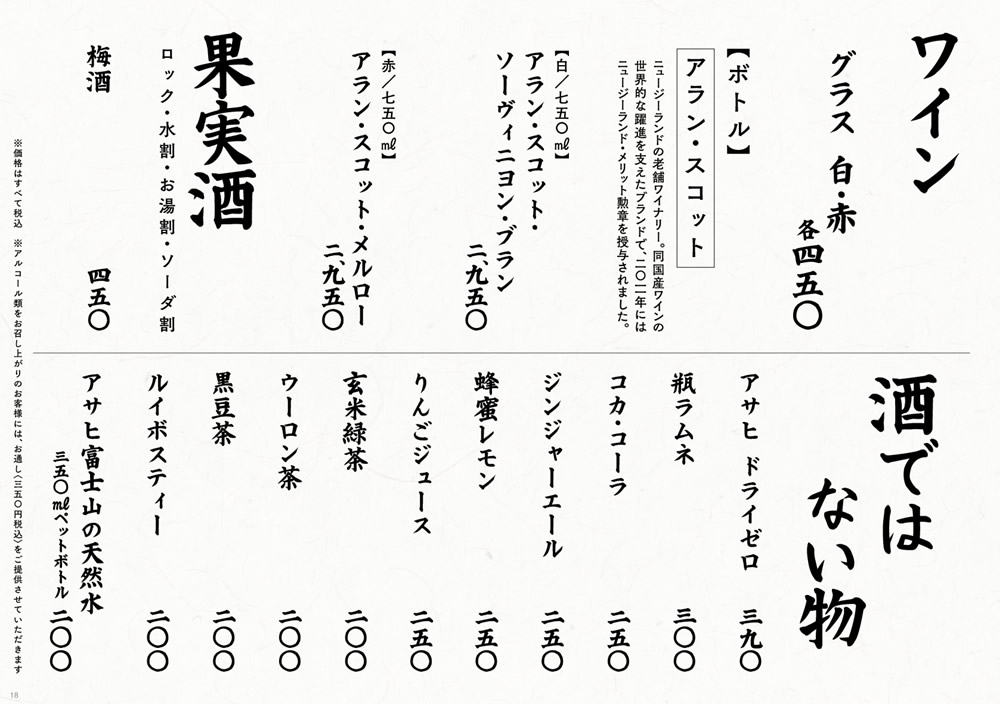 ワイン
グラス 白・赤
各四五〇
【ボトル】
アラン・スコット
ニュージーランドの老舗ワイナリー。同国産ワインの
世界的な躍進を支えたブランドで、二〇一一年には
ニュージーランド・メリット勲章を授与されました。
【白／七五〇㎖】
アラン・スコット・
ソーヴィニヨン・ブラン
二、九五〇
【赤／七五〇㎖】
アラン・スコット・メルロー
二、九五〇
果実酒
ロック・水割・お湯割・ソーダ割
梅酒 四五〇
酒では
ない物
アサヒ ドライゼロ 三九〇
瓶ラムネ 三〇〇
コカ・コーラ 二五〇
ジンジャーエール 二五〇
蜂蜜レモン 二五〇
りんごジュース 二五〇
玄米緑茶 二〇〇
ウーロン茶 二〇〇
黒豆茶 二〇〇
ルイボスティー 二〇〇
アサヒ富士山の天然水
三五〇㎖ペットボトル 二〇〇
※価格はすべて税込 ※アルコール類をお召し上がりのお客様には、お通し（三五〇円税込）をご提供させていただきます
18